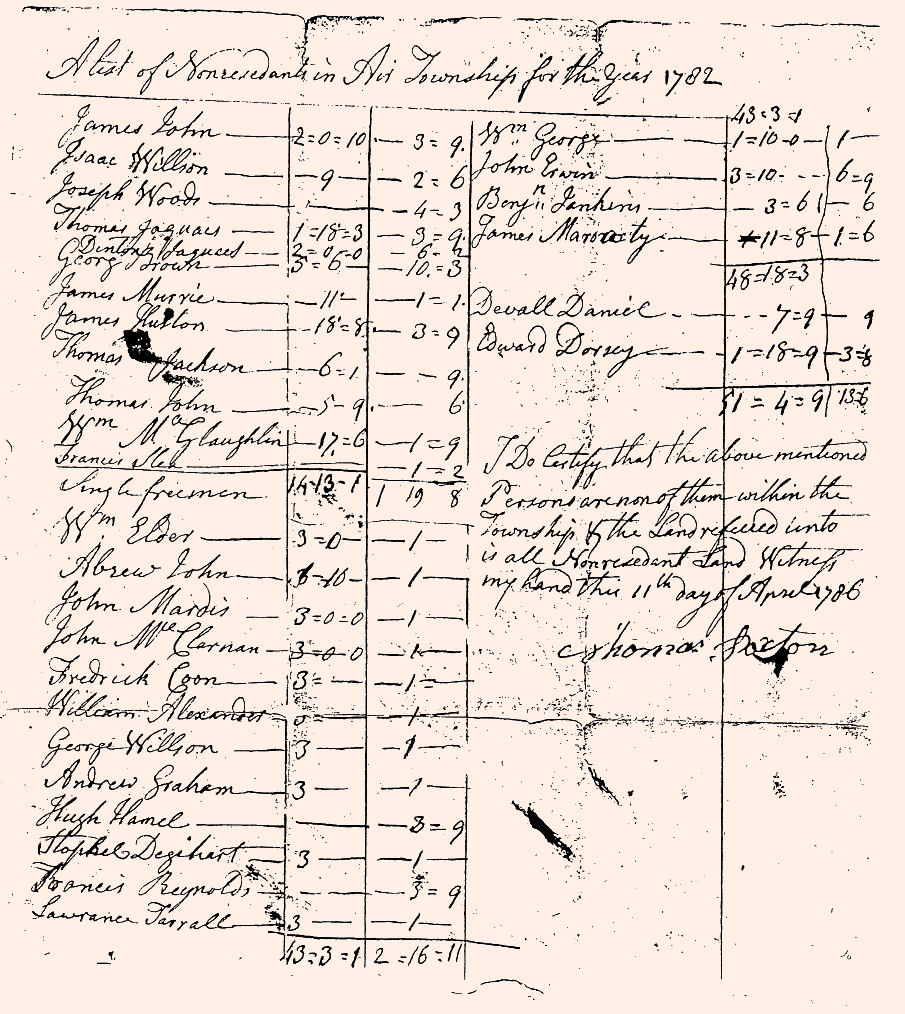 A list of Nonresedants in Air Township for the Year 1782
James John 2=0=10 3=9
Isaac Willson 9 2=6
Joseph Woods 4=3
Thomas Jaquaes 1=18=3 3=9
Dinton Jaquaes 2=0=0 6=
Georg Brown 3=6 10=3
James Murrie 11 1=1
James Hutton 18=8 3=9
Thomas Jackson 6=1 9
Thomas John 5-9 6
Wm McGlaughlin 17=6 1=9
Francis 1=2
14-13-1 1 19 8
Single freemen
Wm Elder 3=0 1
Abrew John 3=10 1
John Mardis 3=0=0 1
John McClarnan 3=0-0 1
Fredrick Coon 3= 1=
William Alexander 1
George Willson 3 1
Andrew Graham 3 1
Hugh Hamel 3=9
Stophel Degihart 3 1
Francis Reynolds 3=9
Lawrance Tarrall 3 1
43=3=1 2=16=11
43=3=1
Wm George 1=10-0 1
John Erwin 3=10 6=9
Benjn Jankins 3=6 6
James Maracty 11=8 1=6
48=18=3
Devall Daniel 7=9 9
Edward Dorsey 1=18=9 3=8
51=4=9 13=6
I Do Certify that the above mentioned
Persons are non of them within the
Township & the Land refered unto
is all Nonresedant Land Witness
my hand this 11th day of April 1786
Thomas Paxton